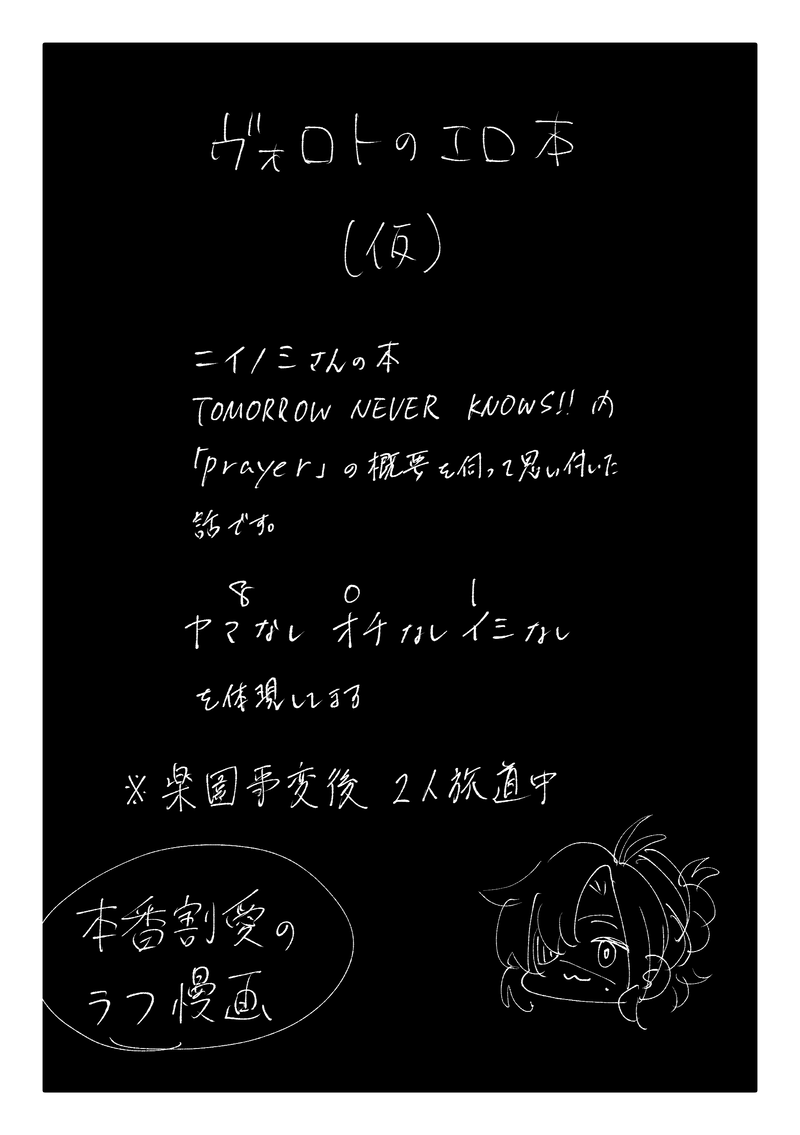 ヴォロトのエロ本
(仮)
ニイノミさんの本
TOMORROW NEVER KNOWS!! 内
「prayer」の概要を伺って思い付いた
話です。
8 0 1
ヤマなし オチなし イミなし
を体現してます
※楽園事変後 2人旅道中
本番割愛の
ラフ漫画